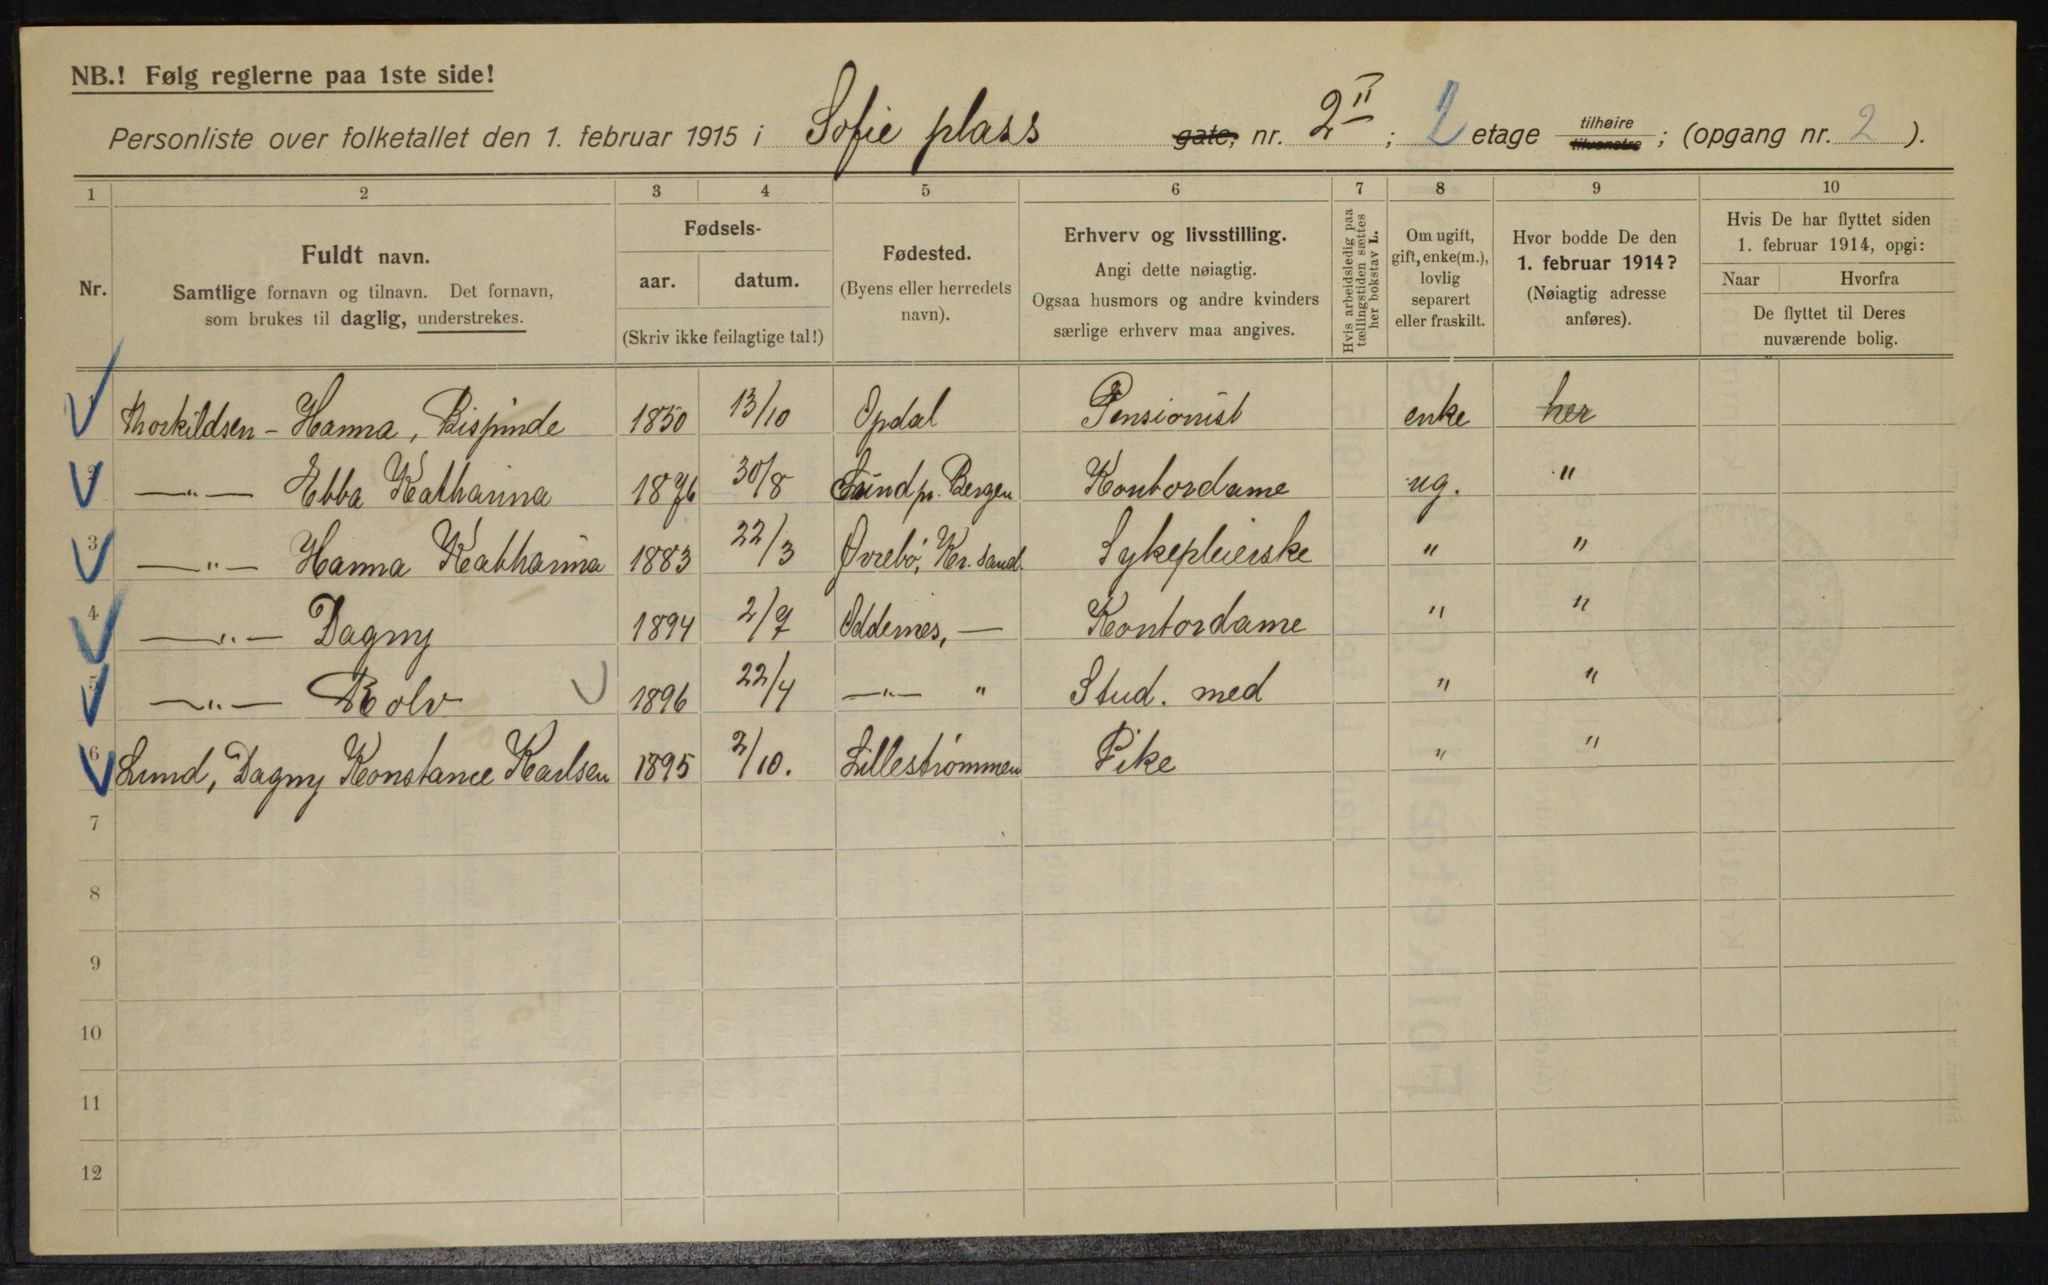 NB.! Følg reglerne paa 1ste side!
Personliste over folketallet den 1. februar 1915 i Sofie plass gate, nr. 2 II ; 2 etage tilhøire tilvenstre ; (opgang nr. 2 ).
1 2 3 4 5 6 7 8 9 10
Nr.
Fuldt navn.
Samtlige fornavn og tilnavn. Det fornavn,
som brukes til daglig, understrekes.
Fødsels-
aar. datum.
(Skriv ikke feilagtige tal!)
Fødested.
(Byens eller herredets
navn).
Erhverv og livsstilling.
Angi dette nøiagtig.
Ogsaa husmors og andre kvinders
særlige erhverv maa angives.
Hvis arbeidsledig paa
tællingstiden sættes
her bokstav L.
Om ugift,
gift, enke(m.),
lovlig
separert
eller fraskilt.
Hvor bodde De den
1. februar 1914?
(Nøiagtig adresse
anføres).
Hvis De har flyttet siden
1. februar 1914, opgi:
Naar Hvorfra
De flyttet til Deres
nuværende bolig.
1 Thorkildsen - Hanna, Bispinde 1850 13/10 Opdal Pensionist enke her
2 —"— Ebba Katharina 1876 30/8 Sund pr. Bergen Kontordame ug. "
3 —"— Hanna Katharina 1883 22/3 Øvrebö, Kr. sand. Sykepleierske " "
4 —"— Dagny 1894 2/7 Oddernes, — Kontordame " "
5 —"— Rolv 1896 22/4 —"— " Stud. med " "
6 Lund, Dagny Konstance Karlsen 1895 2/10. Lillestrømmen Pike " "
7
8
9
10
11
12